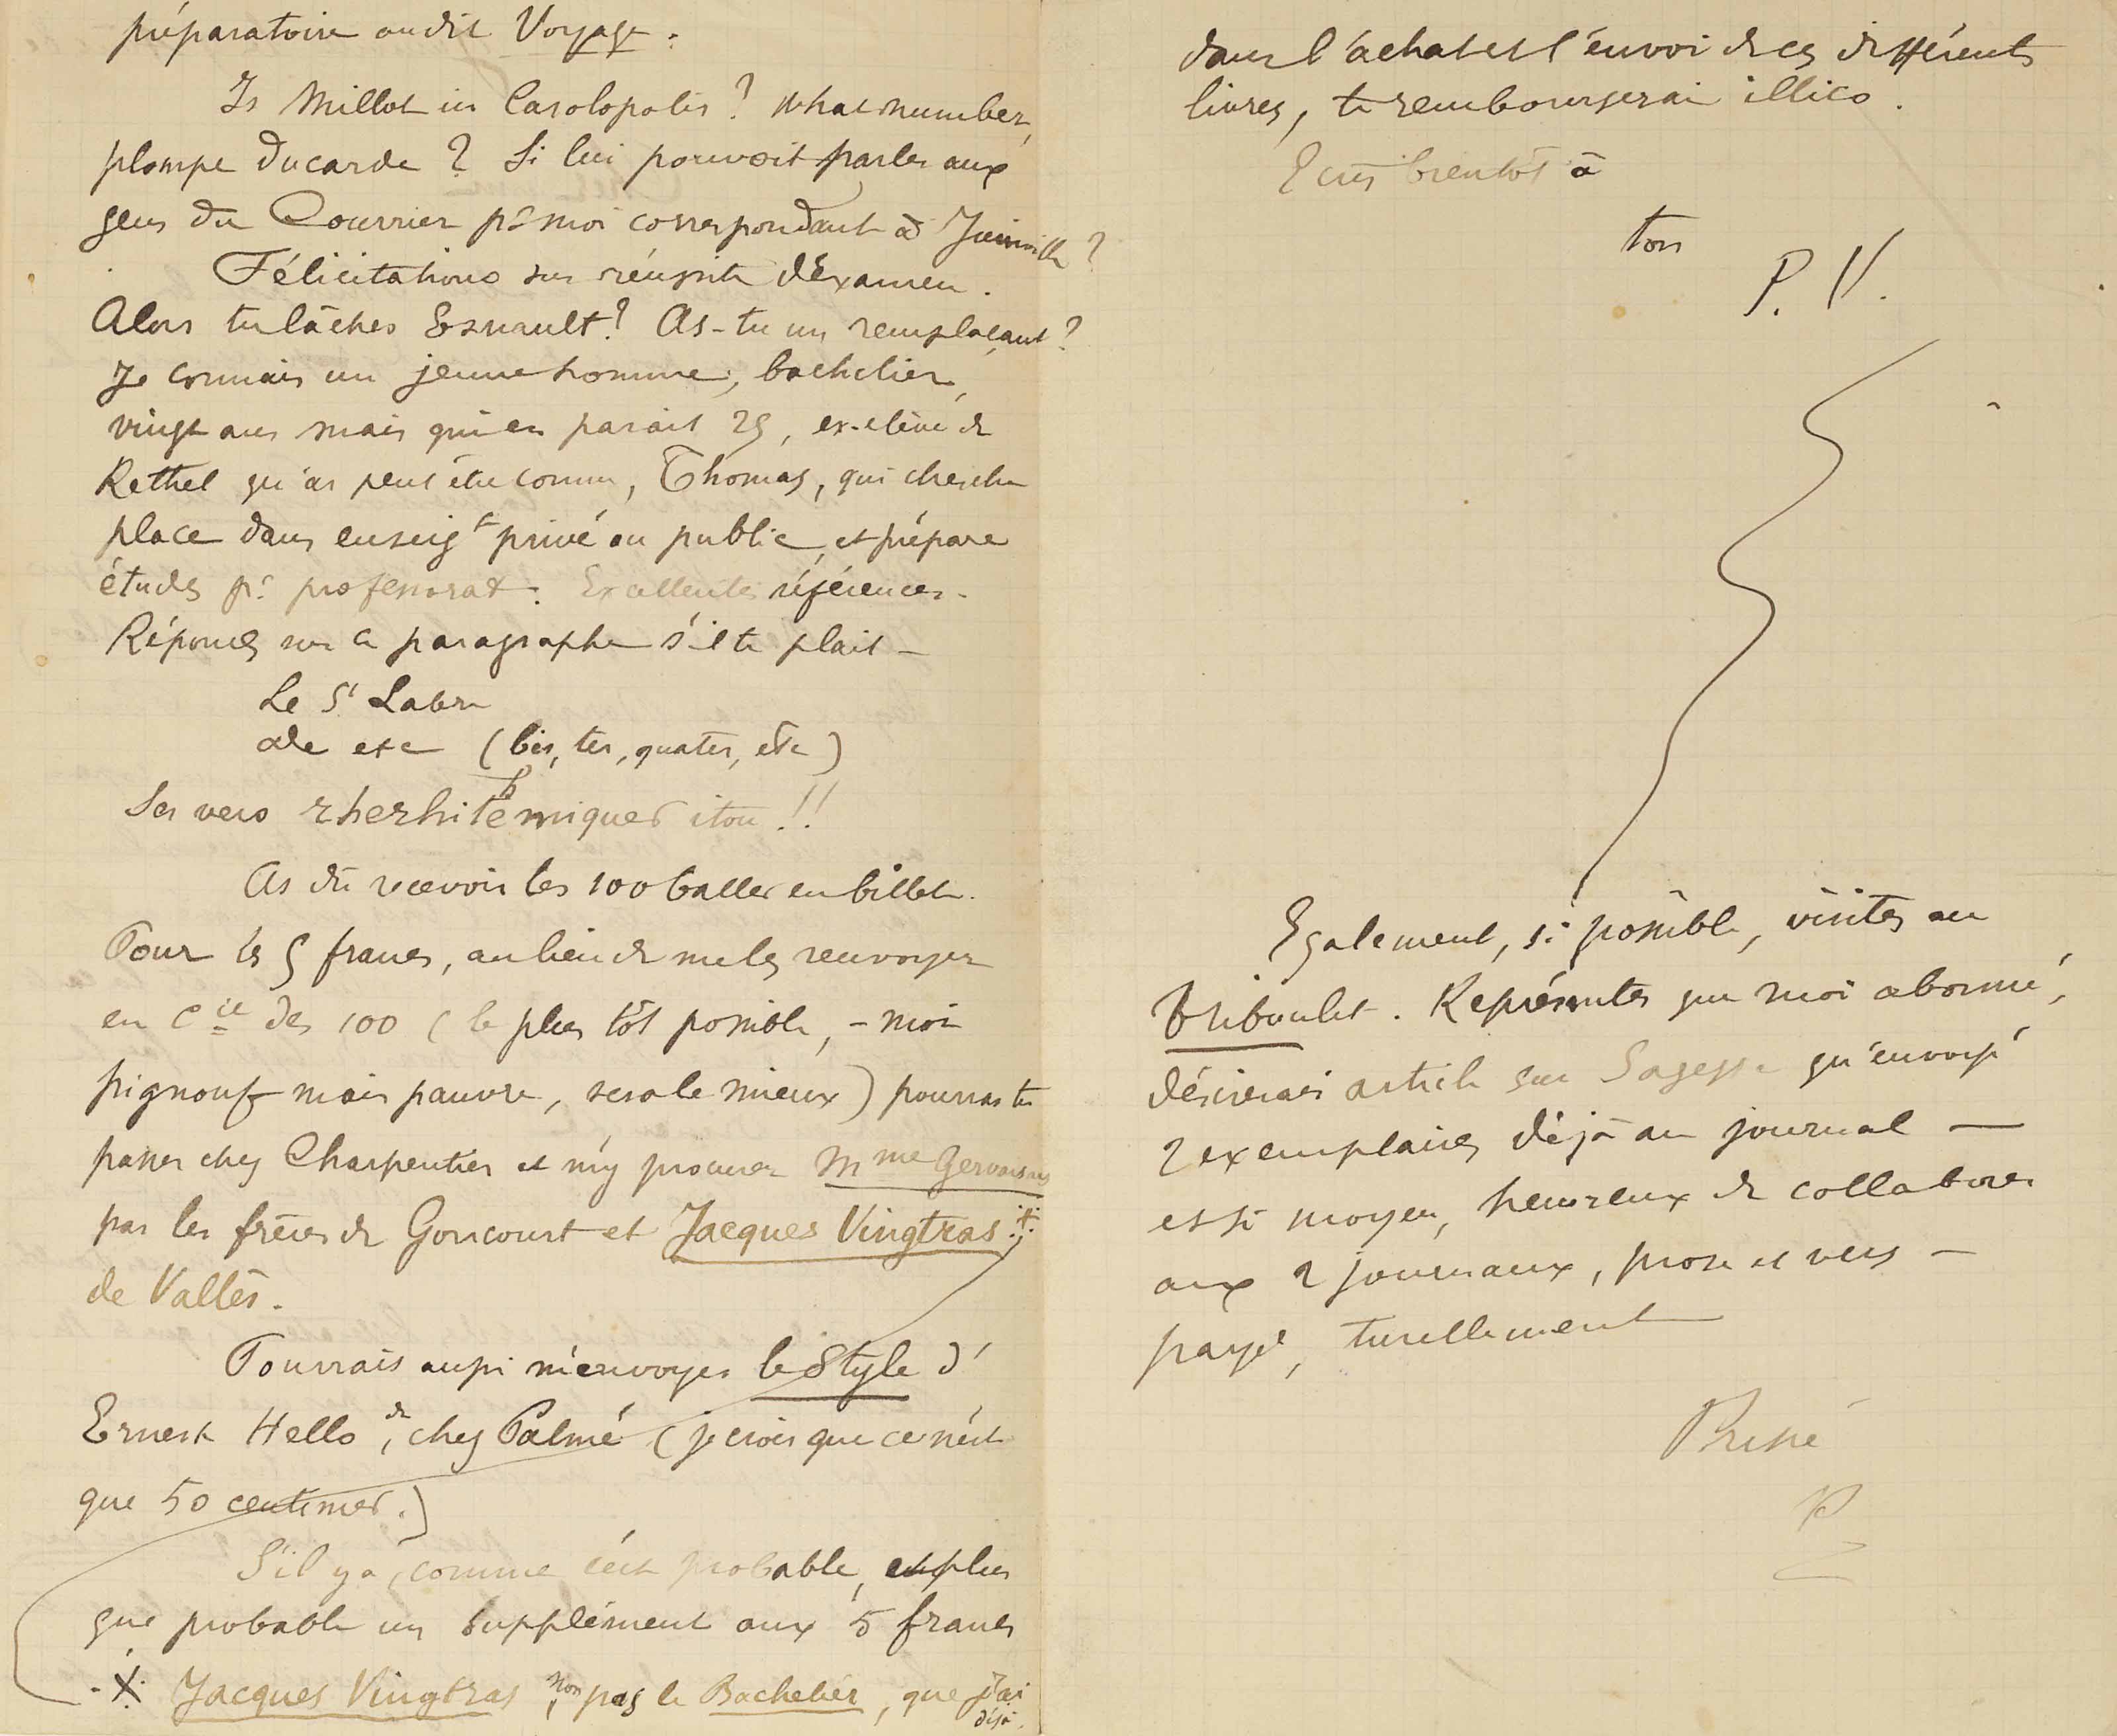 préparatoire audit Voyage.
Is Millot in Carolopolis ? What number,
plompe ducarde ? Si lui pouvoit parler aux
gens du Courrier pr moi correspondant à Juinville ?
Félicitations sur réussite d'examen.
Alors tu lâches Esnault ? As-tu un remplaçant ?
Je connais un jeune homme, bachelier,
vingt ans mais qui en parait 25, ex-élève de
Rethel qu'as peut être connu, Thomas, qui cherche
place dans enseigt privé ou public, et prépare
études pr professorat. Excellentes références.
Réponds sur ce paragraphe s'il te plait —
Le St Labre
ode etc (bis, ter, quater, etc)
Ses vers itou !!
As dû recevoir les 100 balles en billet.
Pour les 5 francs, au lieu de me les renvoyer
en Cie des 100 (le plus tôt possible, – moi
pignouf mais pauvre, sera le mieux) pourras tu
passer chez Charpentier et m'y procurer Mme Gervaisais
par les frères de Goncourt et Jacques Vingtras ⁜
de Vallès.
Pourrais aussi m'envoyer le Style d'
Ernest Hello, de chez Palmé (je crois que ce n'est
que 50 centimes.)
S'il y a, comme c'est probable, et plus
que probable un supplément aux 5 francs
⁜ Jacques Vingtras, non pas le Bachelier, que j'ai
déjà.
dans l'achat et l'envoi de ces différents
livres, te rembourserai illico.
Ecris bientôt à
ton
P. V.
Egalement, si possible, visites au
Triboulet. Représentes que moi abonné,
désirerais article sur Sagesse qu'envoyé
2 exemplaires déjà au journal —
et si moyen, heureux de collaborer
aux 2 journaux, prose et vers —
payé, turellement
P